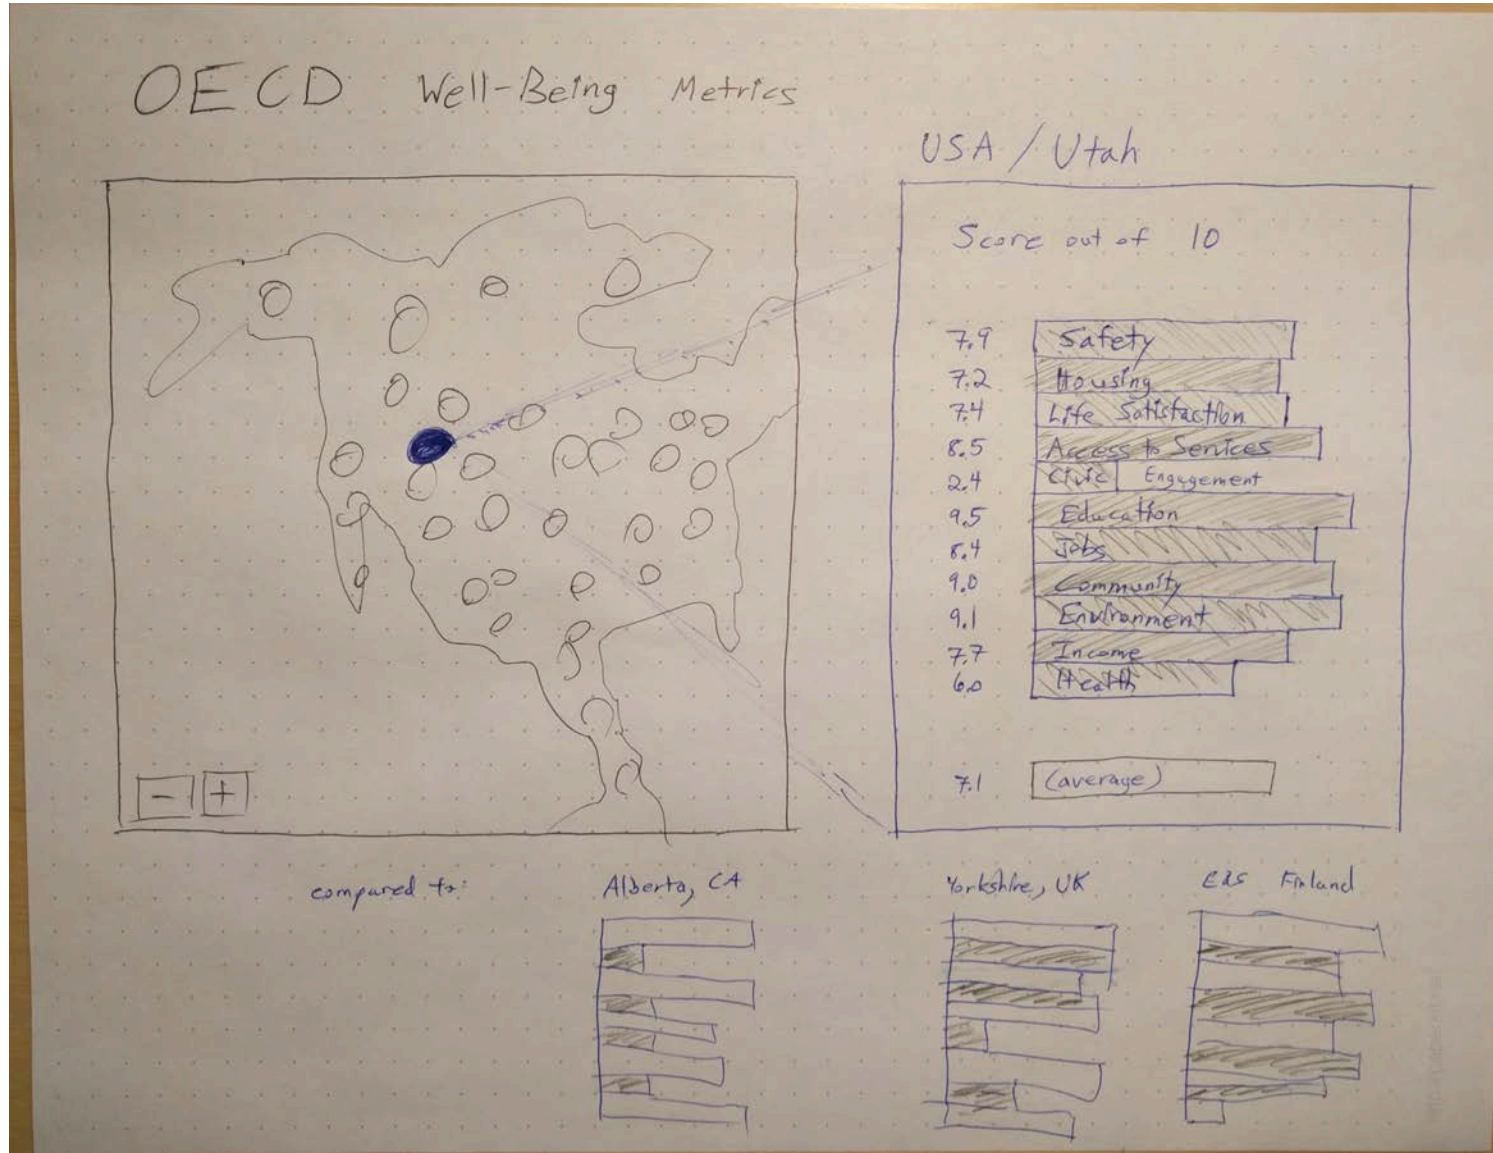 OECD Well-Being Metrics
USA / Utah
Score out of 10
7.9 Safety
7.2 Housing
7.4 Life Satisfaction
8.5 Access to Services
2.4 Civic Engagement
9.5 Education
8.4 Jobs
9.0 Community
9.1 Environment
7.7 Income
6.0 Health
7.1 (average)
- +
compared to: Alberta, CA Yorkshire, UK Finland